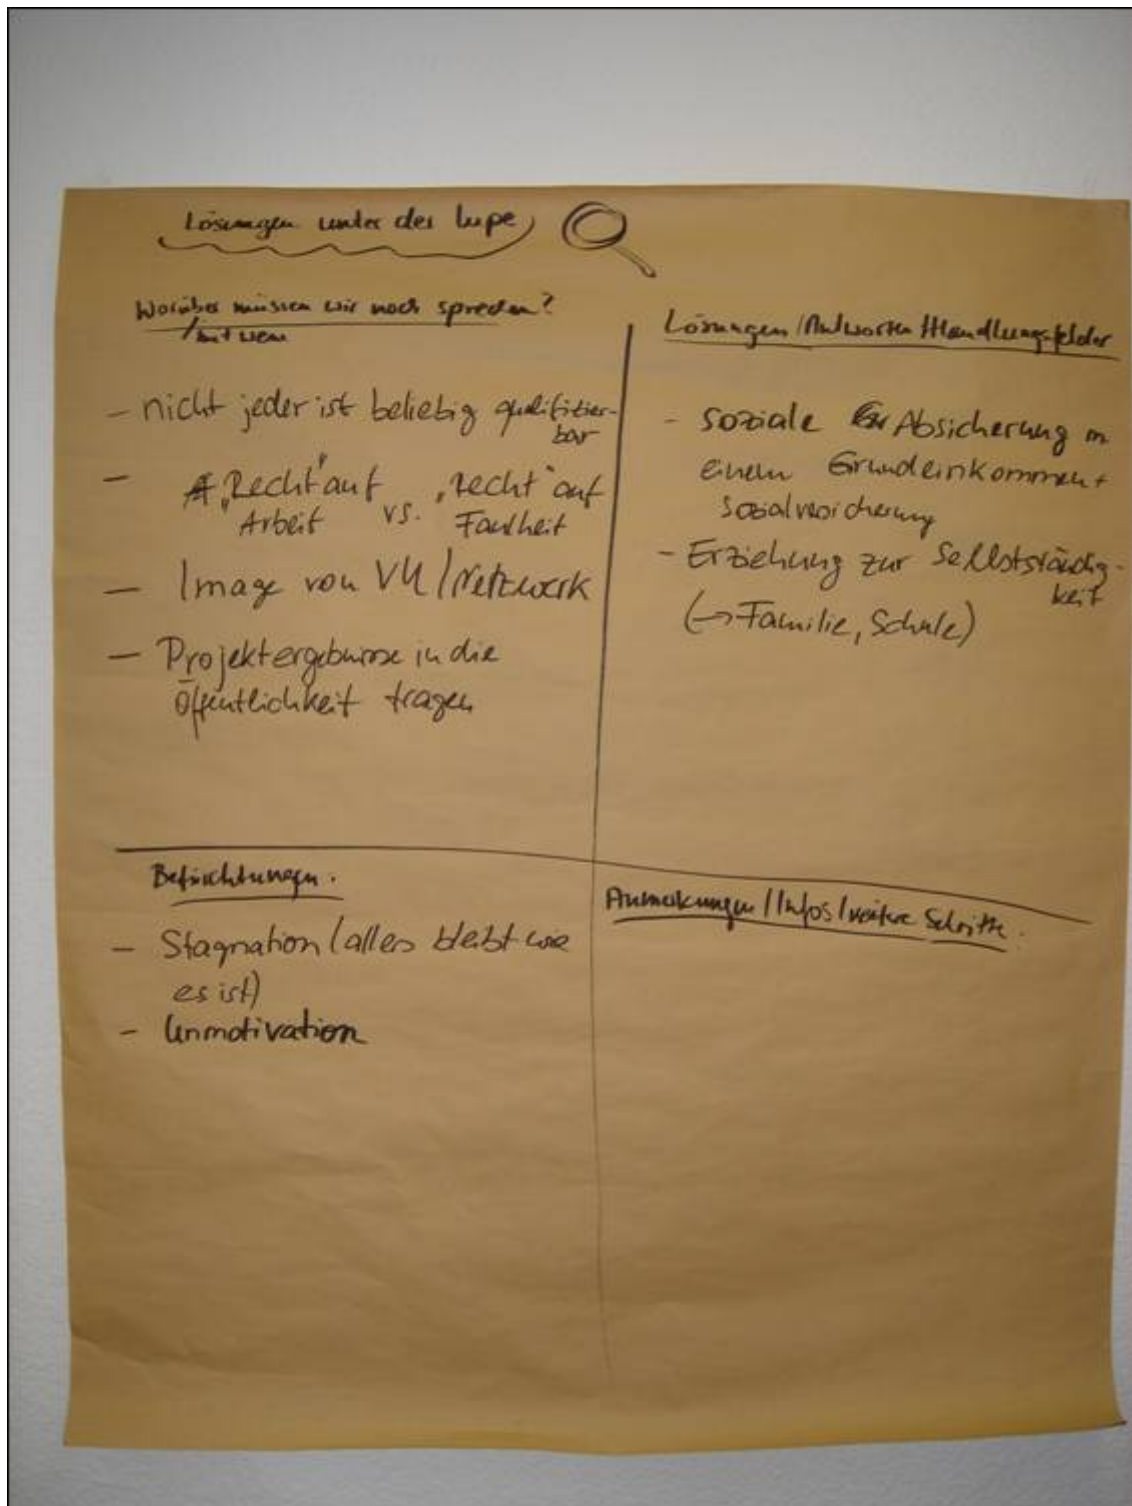 Lösungen unter der Lupe
Worüber müssen wir noch sprechen?
/mit wem
- nicht jeder ist beliebig qualifizier-
bar
- „Recht" auf vs. „Recht" auf
Arbeit Faulheit
- Image von VU/Netzwerk
- Projektergebnisse in die
Öffentlichkeit tragen
Lösungen/Antworten/Handlungsfelder
- soziale Absicherung in
einem Grundeinkommen +
Sozialversicherung
- Erziehung zur Selbstständig-
keit
(→ Familie, Schule)
Befürchtungen.
- Stagnation (alles bleibt wie
es ist)
- Unmotivation
Anmerkungen/Infos/weitere Schritte.